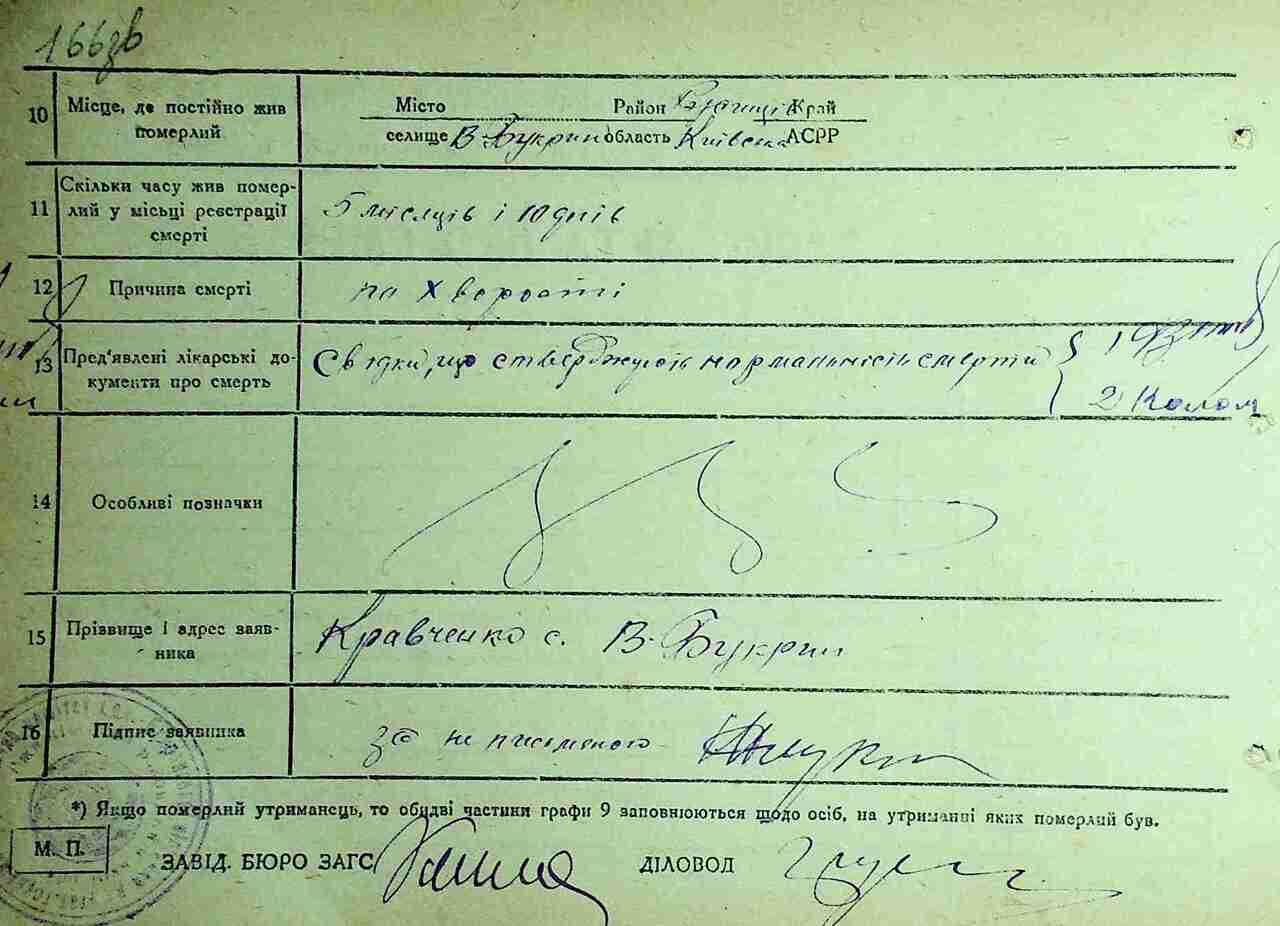 166зв
10 Місце, де постійно жив померлий
Місто Район Край
селище В-Букрин область Київська АСРР
11 Скільки часу жив помер-
лий у місці реєстрації
смерті
5 місяців і 10 днів
12 Причина смерті
по хворості
13 Пред'явлені лікарські до-
кументи про смерть
Свідки, що стверджують нормальність смерти { 1
2 Колом
14 Особливі позначки
15 Прізвище і адрес заяв-
ника
Кравченко с. В-Букрин
16 Підпис заявника
за не письменого
*) Якщо померлий утриманець, то обидві частини графи 9 заповнюються щодо осіб, на утриманні яких померлий був.
М. П.
ЗАВІД. БЮРО ЗАГС ДІЛОВОД